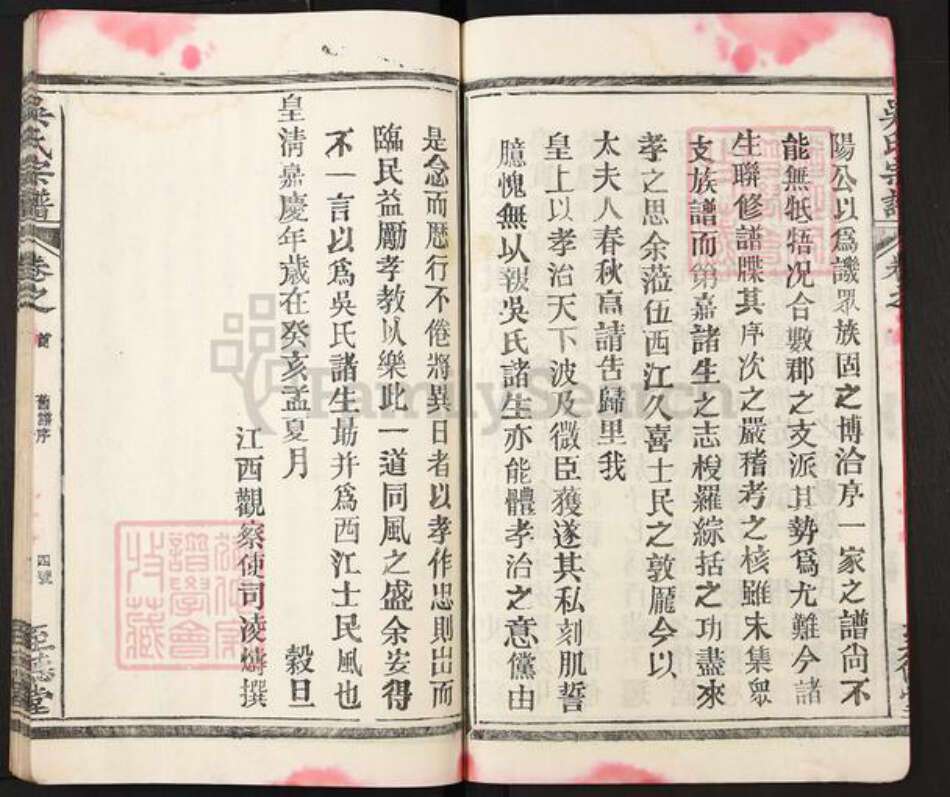 陽公以爲譏眾族固之博洽序一家之譜尙不
能無牴牾況合數郡之支派其勢爲尤難今諸
生聯修譜牒其序次之嚴稽考之核雖未集眾
支族譜而第嘉諸生之志梭羅綜括之功盡來
孝之思余蒞伍西江久喜士民之敦龎今以
太夫人春秋高請告歸里我
皇上以孝治天下波及微臣獲遂其私刻肌誓
臆愧無以報吳氏諸生亦能體孝治之意儻由
是念而歷行不倦將異日者以孝作忠則出而
臨民益勵孝教以樂此一道同風之盛余安得
不一言以爲吳氏諸生勗并爲西江士民風也
皇清嘉慶年歲在癸亥孟夏月 穀旦
江西觀察使司淩燽撰
吳氏宗譜 卷之首 舊譜序 四號 至德堂
吳氏宗譜 卷之
譜學會
收藏
FamilySearch